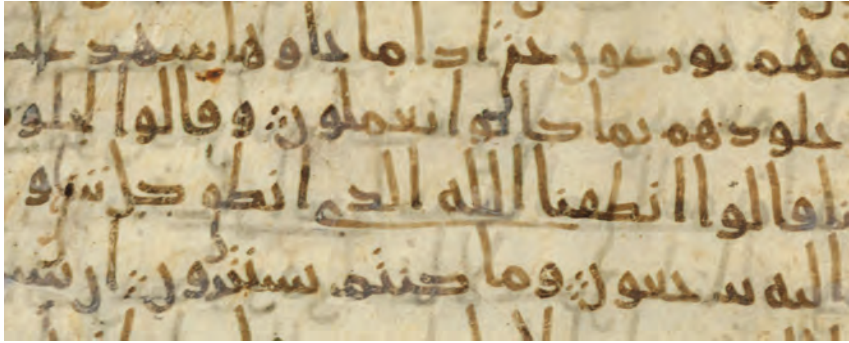 فهم يوزعون حتى اذا ما جاوها شهد علـ
جلودهم بما كانوا يعملون وقالوا لجلو
نا قالوا انطقنا الله الذي انطق كل شي و
اليه ترجعون وما كنتم تستترون ان يشـ